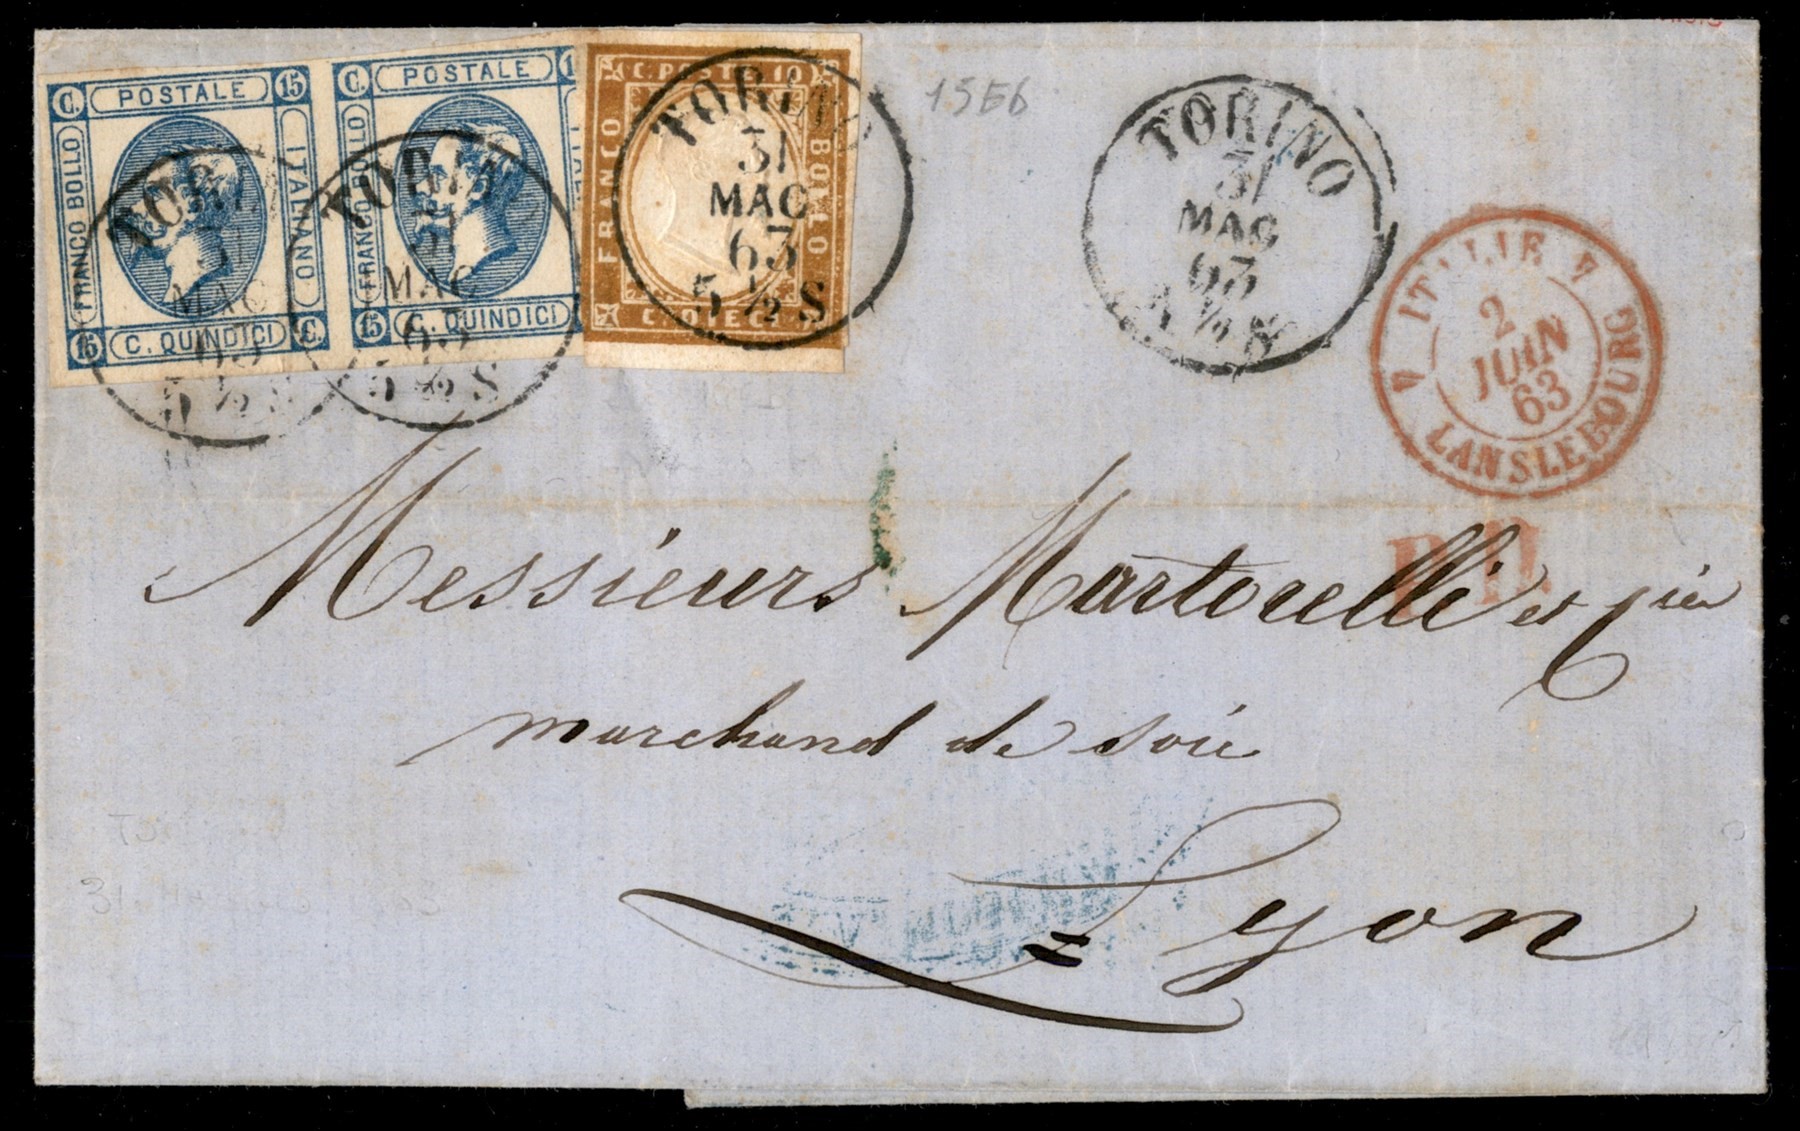 C. POSTALE 15
FRANCO BOLLO
ITALIANO
15 C. QUINDICI C.
C. POSTALE
FRANCO BOLLO
15 C. QUINDICI
C. POSTE 10
FRANCO
BOLLO
C. DIECI 10
TORINO
31
MAG
63
5 ½ S
TORINO
31
MAG
63
5 ½ S
TORINO
31
MAG
63
5 ½ S
15E6
TORINO
31
MAG
63
5 ½ S
ITALIE
2
JUIN
63
LANSLEBOURG
Messieurs Martorelli et Cie
marchand de soie
Lyon